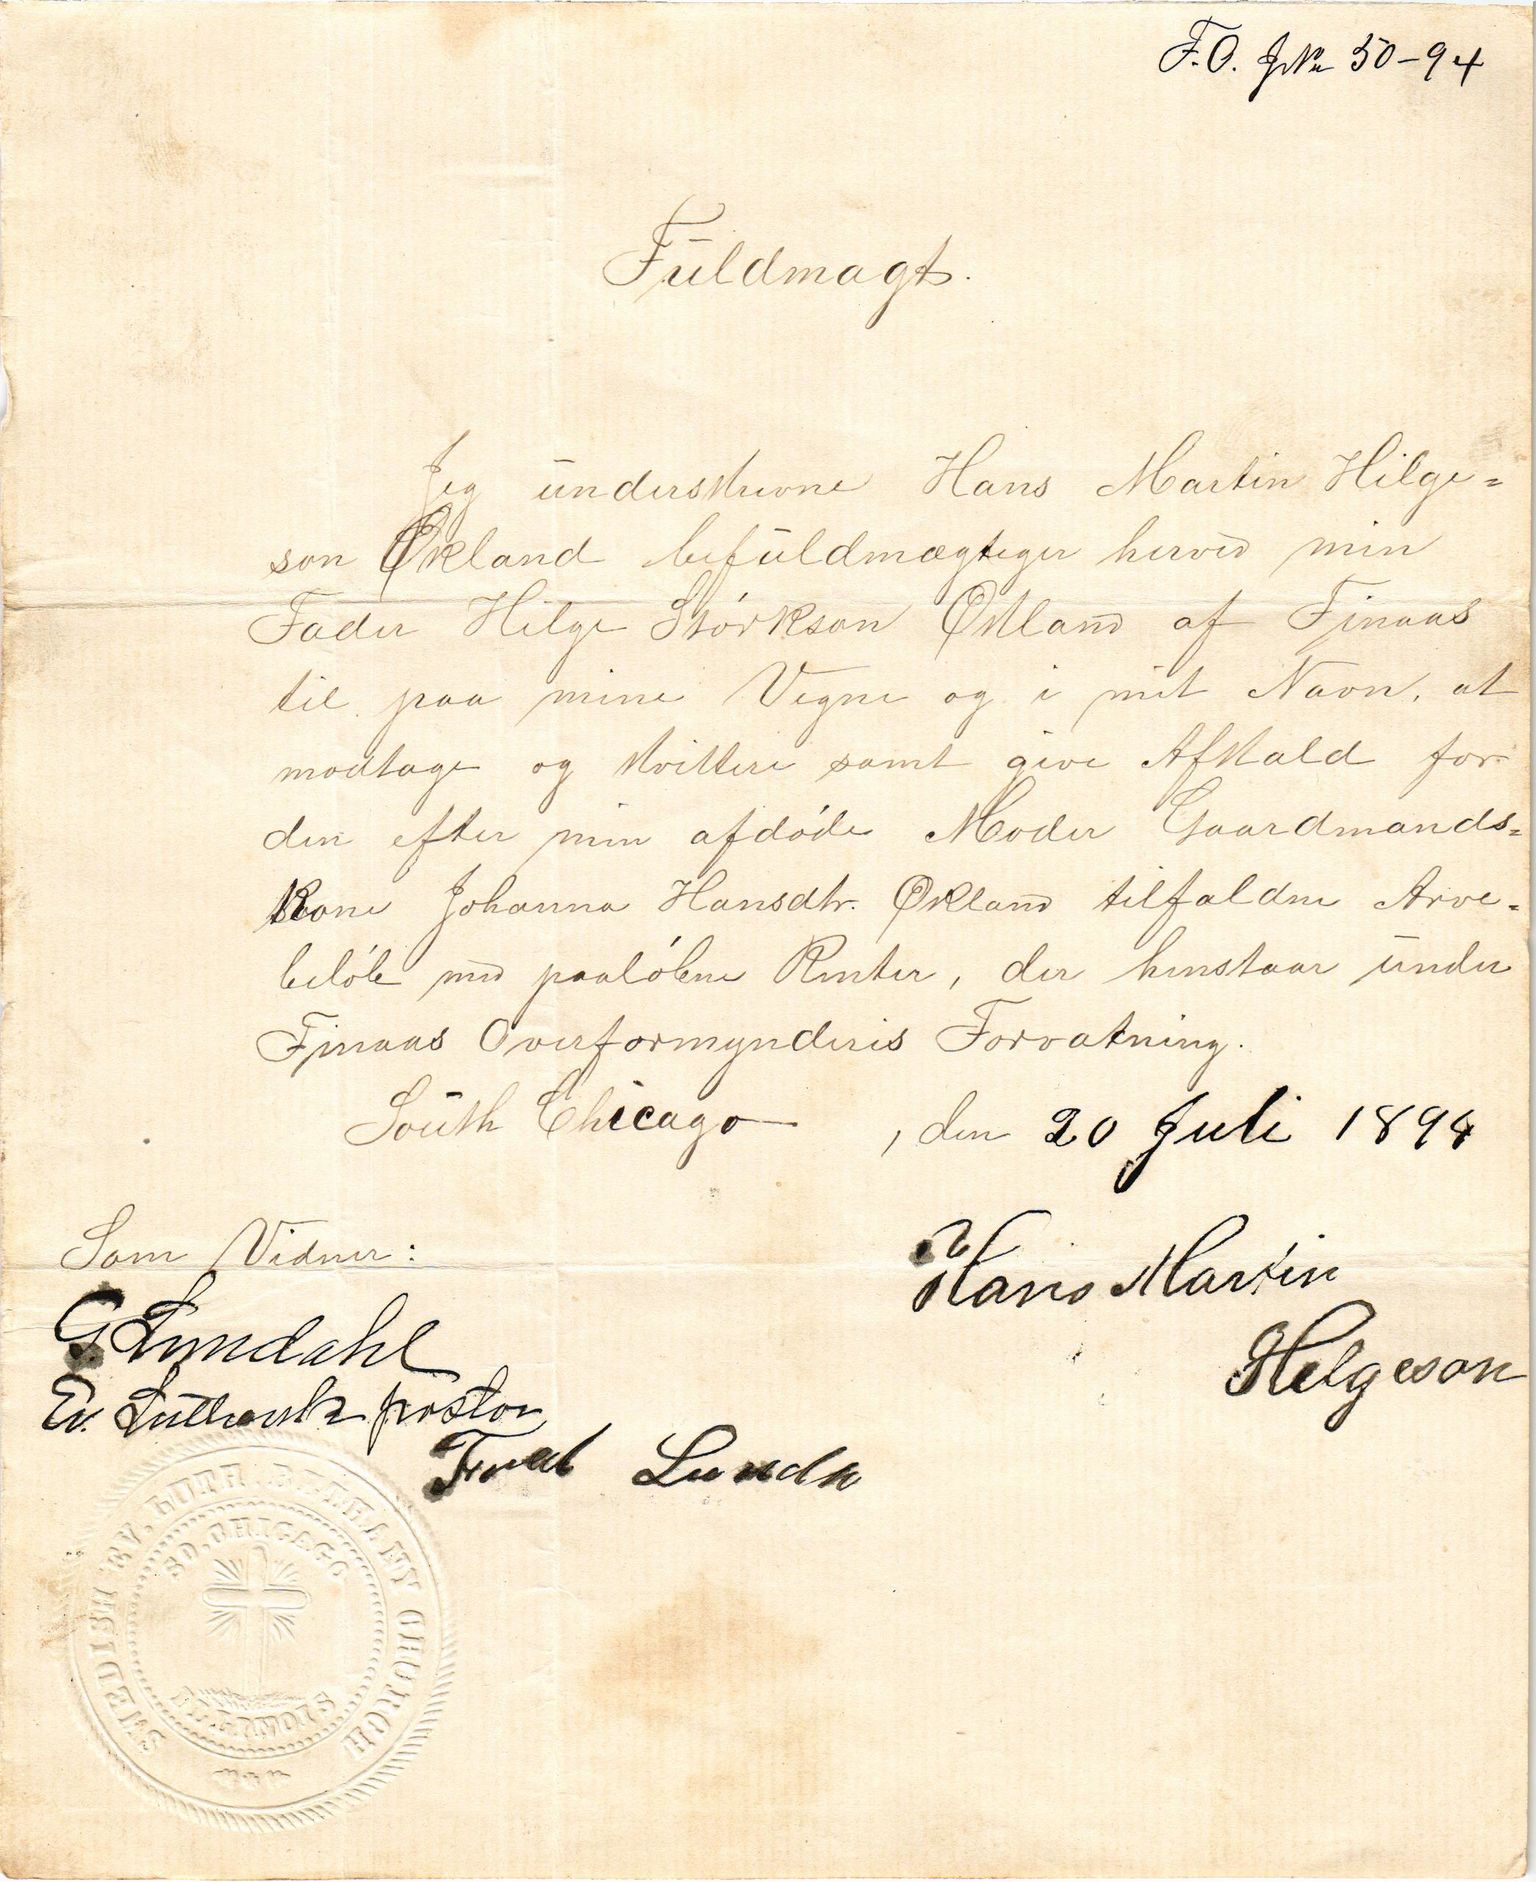 F.O. JNr 50-94
Fuldmagt.
Jeg underskrevne Hans Martin Hilge=
son Økland befuldmægtiger herved min
Fader Hilge Størkson Økland af Finaas
til paa mine Vegne og i mit Navn, at
modtage og kvittere samt give Afkald for
den efter min afdøde Moder Gaardmands=
kone Johanna Hansdtr. Økland tilfaldne Arve=
beløb med paaløbne Renter, der henstaar under
Finaas Overformynderis Forvatning.
South Chicago, den 20 Juli 1894
Som Vidner:
Hans Martin
Helgeson
G Lundahl
Ev. Luthersk pastor
Fred Lundh
SWEDISH EV. LUTH. BETHANY CHURCH
SO. CHICAGO
ILLINOIS